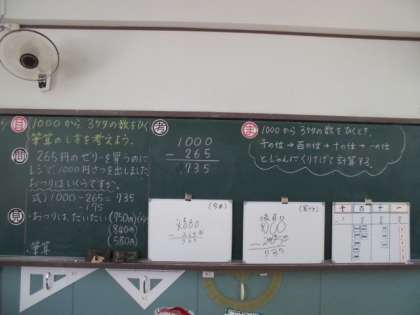 目 1000から3ケタの数をひく
筆算のし方を考えよう。
問 265円のゼリーを買うのに
レジで、1000円さつを出しました
おつりはいくらですか。
式) 1000-265=735
見 ・おつりは、だいたい (750円)
(840円)
(580円)
筆算
考
1000
- 265
735
ま 1000から3ケタの数をひくとき、
千の位→百の位→十の位→一の位
とじゅんにくり下げて計算する。
千 百 十 一